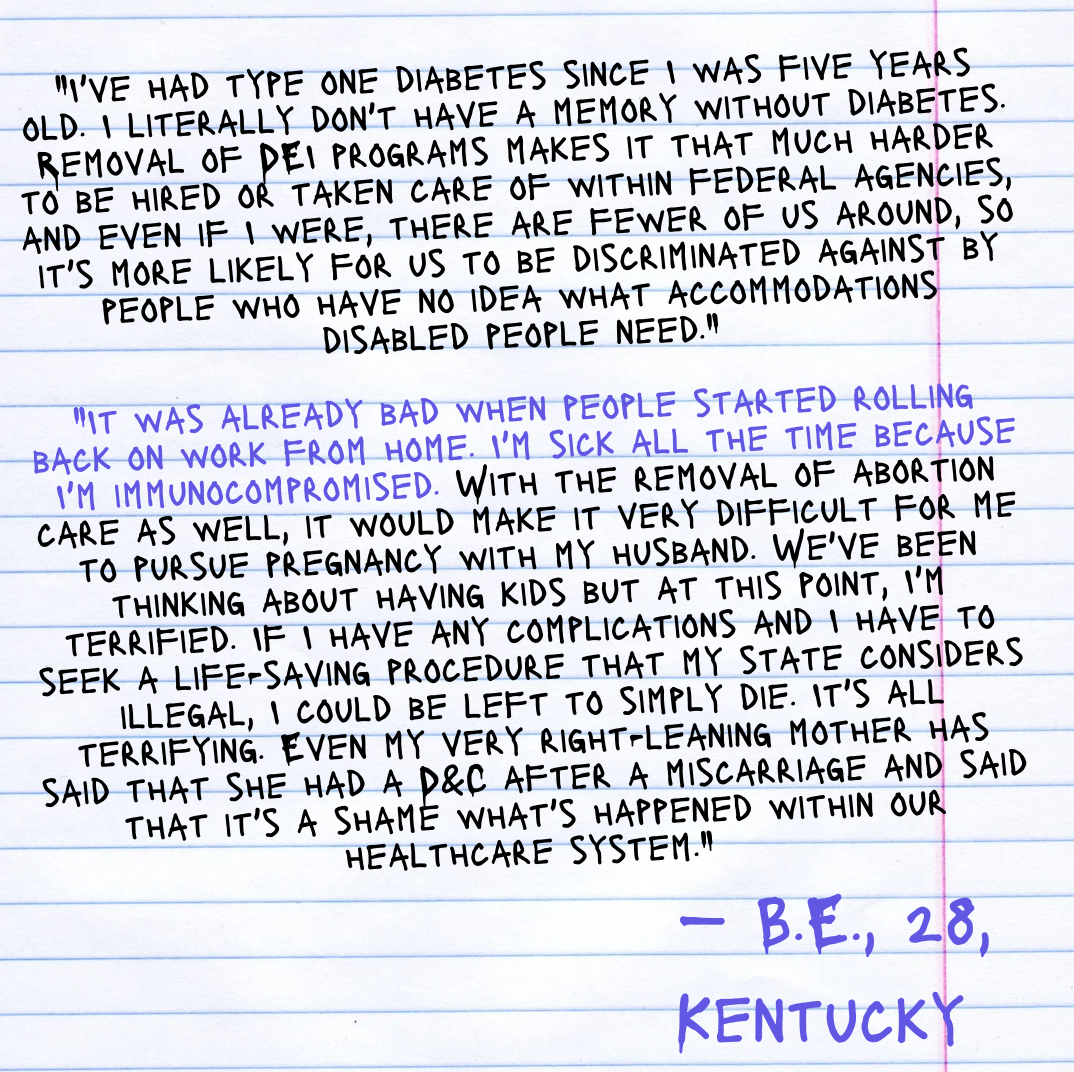 "I'VE HAD TYPE ONE DIABETES SINCE I WAS FIVE YEARS
OLD. I LITERALLY DON'T HAVE A MEMORY WITHOUT DIABETES.
REMOVAL OF DEI PROGRAMS MAKES IT THAT MUCH HARDER
TO BE HIRED OR TAKEN CARE OF WITHIN FEDERAL AGENCIES,
AND EVEN IF I WERE, THERE ARE FEWER OF US AROUND, SO
IT'S MORE LIKELY FOR US TO BE DISCRIMINATED AGAINST BY
PEOPLE WHO HAVE NO IDEA WHAT ACCOMMODATIONS
DISABLED PEOPLE NEED."
"IT WAS ALREADY BAD WHEN PEOPLE STARTED ROLLING
BACK ON WORK FROM HOME. I'M SICK ALL THE TIME BECAUSE
I'M IMMUNOCOMPROMISED. WITH THE REMOVAL OF ABORTION
CARE AS WELL, IT WOULD MAKE IT VERY DIFFICULT FOR ME
TO PURSUE PREGNANCY WITH MY HUSBAND. WE'VE BEEN
THINKING ABOUT HAVING KIDS BUT AT THIS POINT, I'M
TERRIFIED. IF I HAVE ANY COMPLICATIONS AND I HAVE TO
SEEK A LIFE-SAVING PROCEDURE THAT MY STATE CONSIDERS
ILLEGAL, I COULD BE LEFT TO SIMPLY DIE. IT'S ALL
TERRIFYING. EVEN MY VERY RIGHT-LEANING MOTHER HAS
SAID THAT SHE HAD A D&C AFTER A MISCARRIAGE AND SAID
THAT IT'S A SHAME WHAT'S HAPPENED WITHIN OUR
HEALTHCARE SYSTEM."
— B.E., 28,
KENTUCKY